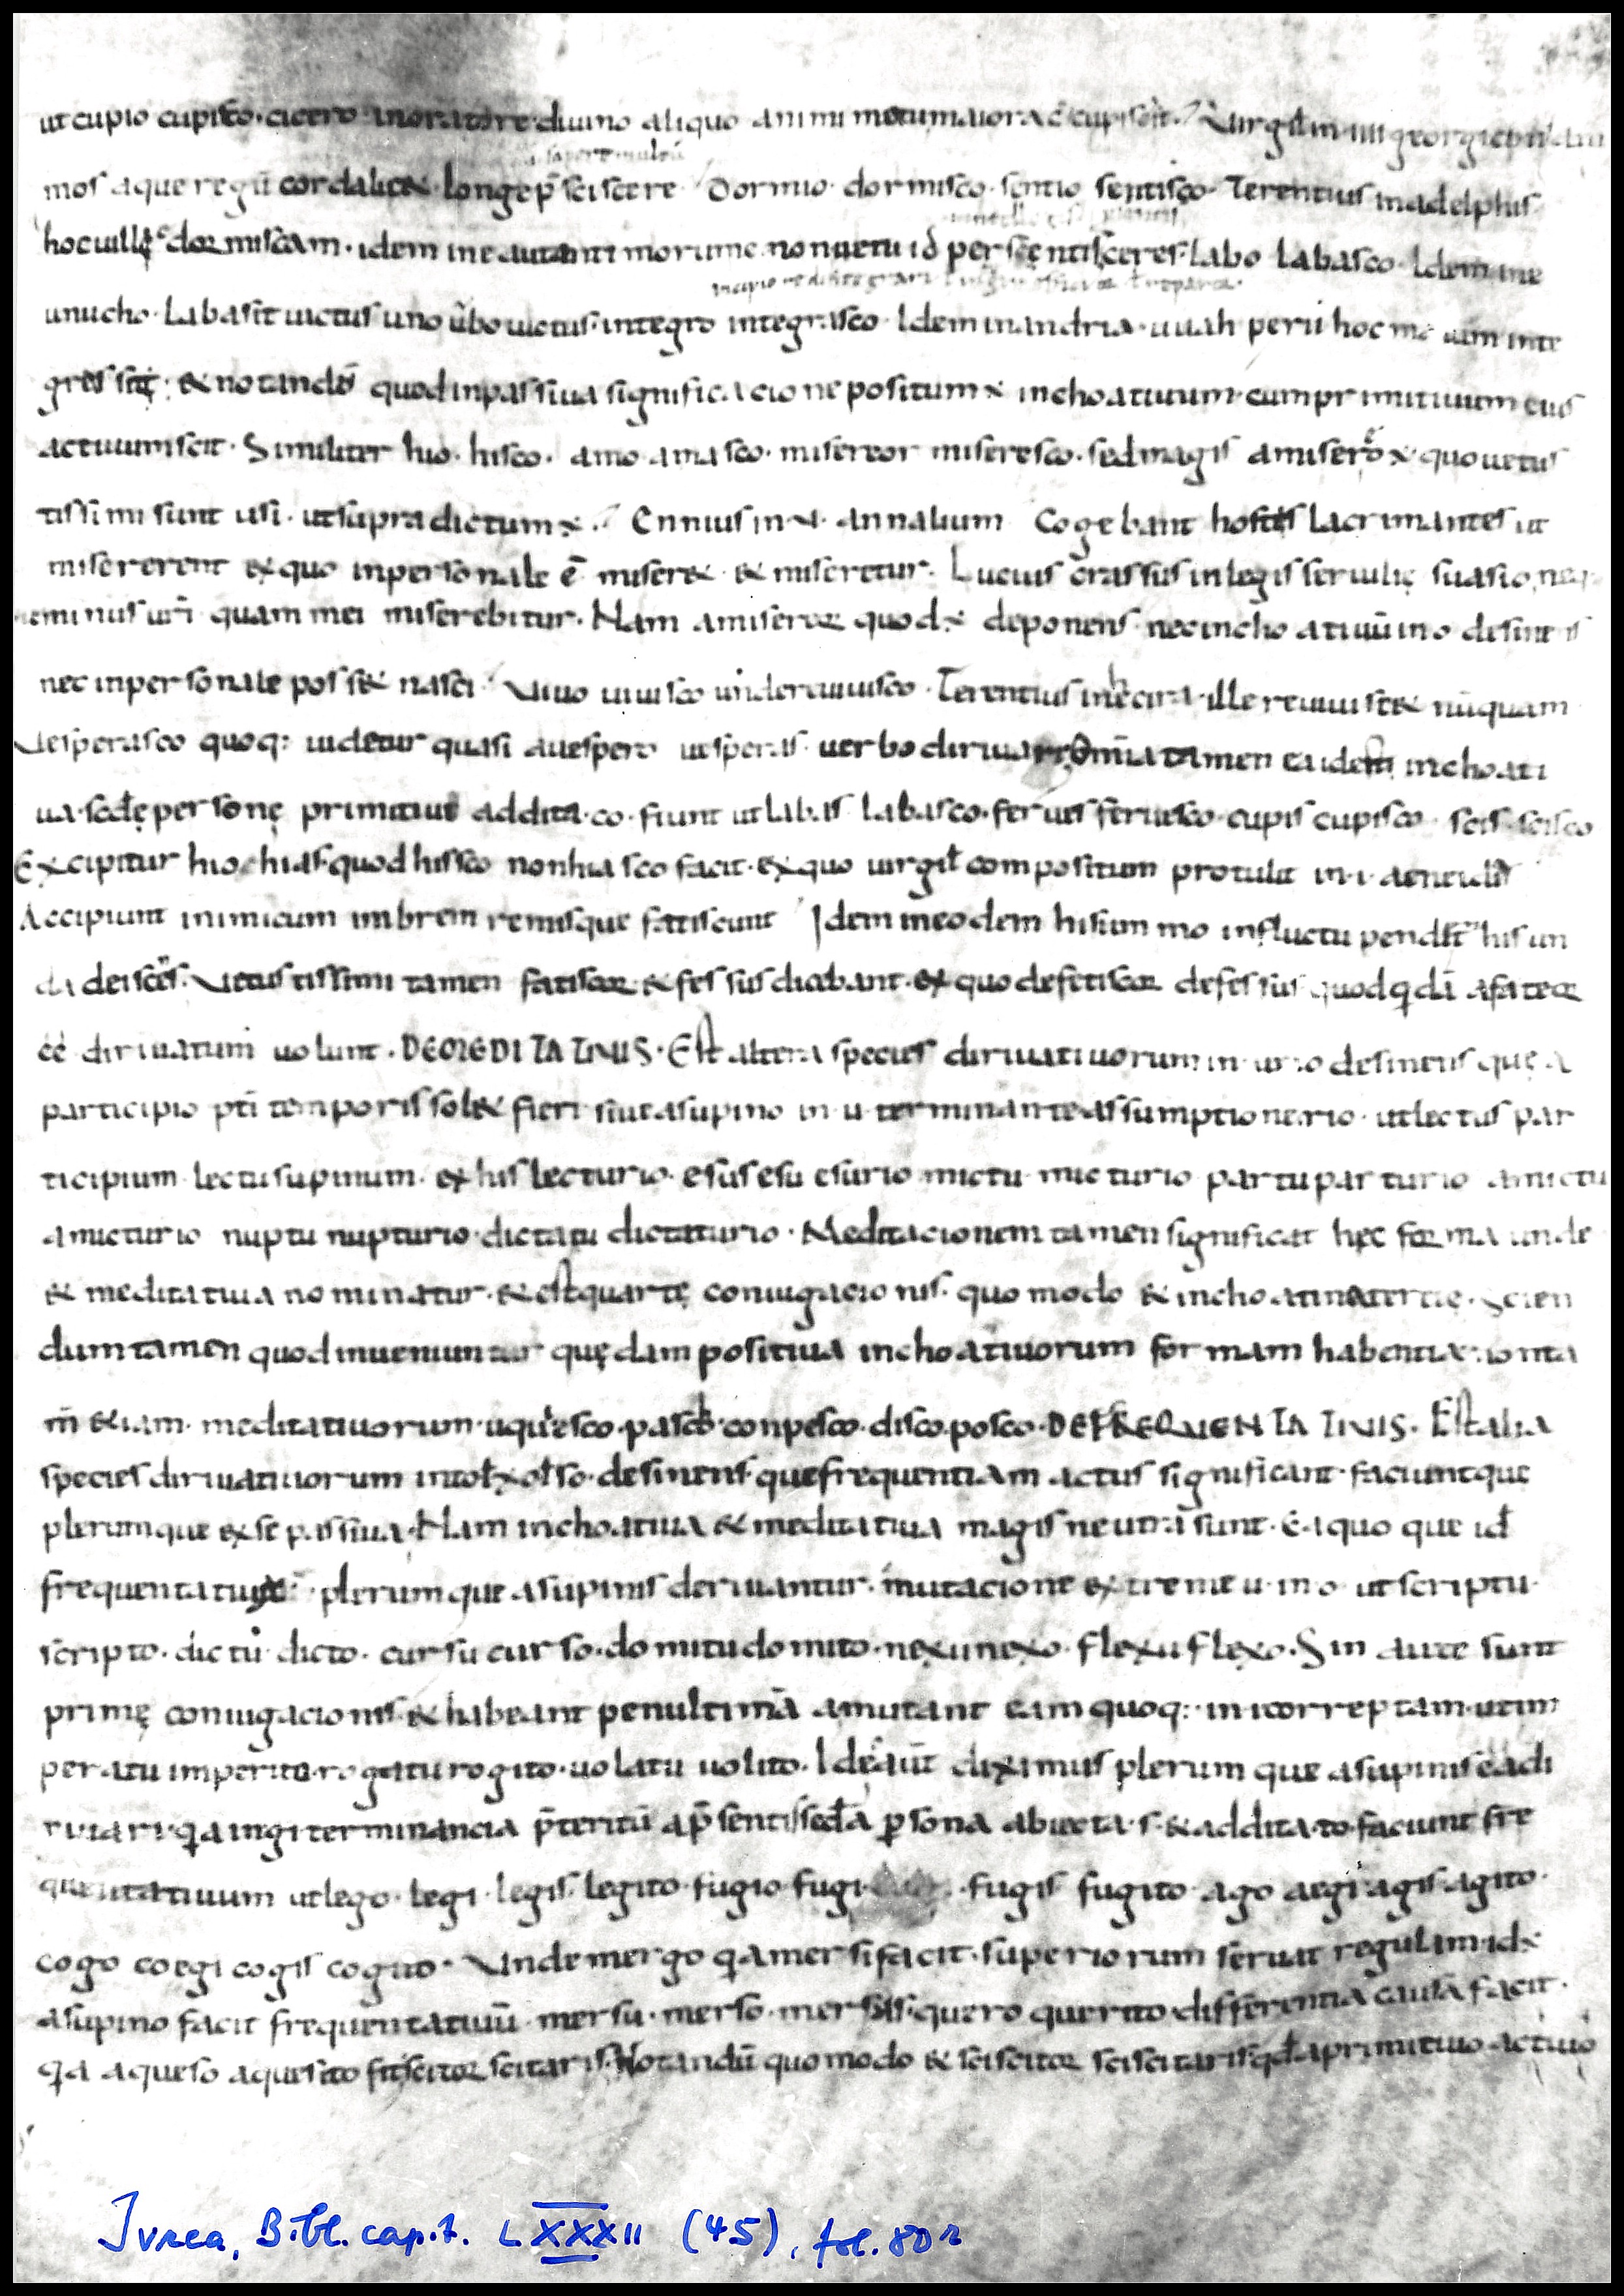 ut cupio cupisco. cicero in oratore diuino aliquo animi motu maiora c̄cupiscit. Uirgłm. iiii georgicon
mos aque regū corda licet longe p̄sciscere Dormio. dormisco. sentio sentisco. Terentius in adelphis
hoc uillę dormiscam. idem in eautonti morumc. non uetu id persentisceres. labo labasco. Idem in e
unucho. Labasit uictus uno ùbo uictus. integro integrasco. Idem in andria. uuah perii hoc me autm inte
grescit. & notandū quod in passiua significacione positum ÷ inchoatiuum. cum primitiuum eius
actiuum scit. Similiter hio. hisco. amo amasco. misereor miseresco. sed magis a misero ÷ quo uetus
tissimi sunt usi. ut supra dictum ÷. Ennius in x. annalium Cogebant hostes lacrimantes ut
misererent ex quo inpersonale ē miseret & miseretur. Lucius crassus in legis seruilię suasio, neq
minus ur̄i quam mei miserebitur. Nam a misereor quod ÷ deponens nec inchoatiuū in o desinens
nec inpersonale posset nasci. Uiuo uiuisco unde reuiuisco. Terentius in hecira. ille reuiuiscet nūquam
Uesperasco quoq: uidetur quasi a uespero uesperas uerbo diriuari omnia tamen eadem inchoati
ua. scdę personę primitiui addita. co. fiunt ut labas labasco. ferues feruesco. cupis cupisco scis. scisco
Excipitur hio. hias. quod hissco non hiasco facit. ex quo uirgił compositum protulit in. i. aeneidis
Accipiunt inimicum imbrem remisque fatiscunt Idem in eodem hi summo in fluctu pendēt his un
da deiscēs. Uetustissimi tamen fatiscor & fessus dicebant. ex quo defetiscor defessus quod q̄dā a fateor
ēē diriuatum uolunt. DE MEDITATIUIS. Est altera species diriuatiuorum in. urio desinens que a
participio p̄ti temporis solet fieri siue a supino in. u. terminante assumptione. rio. ut lectus par
ticipium lectu supinum. ex his lecturio. esus esu esurio mictu micturio partu parturio amictu
amicturio nuptu nupturio. dictatu dictaturio. Meditacionem tamen significat hęc forma unde
& meditatiua nominatur. & est quartę coniugacionis. quo modo & inchoatiua tertię. Scien
dum tamen quod inueniuntur quędam positiua inchoatiuorum formam habentia. non ta
m̄ etiam. meditatiuorum. ut qu'esco. pasco. conpesco. disco. posco. DE FREQUENTATIUIS. Est alia
species diriuatiuorum in to ł xo ł so. desinens. que frequentiam actus significant. faciuntque
plerumque ex se passiua. Nam inchoatiua & meditatiua magis neutra sunt. Ea quoque id
frequentatiua. plerumque a supinis deriuantur. mutacione extreme u. in o ut scriptu.
scripto. dictu. dicto. cursu curso. domitu domito. nexu nexo. flexu flexo. Sin aute sunt
primę coniugacionis. & habeant penultimā a mutant eam quoq: in i correptam. ut im
peratu imperito. rogatu rogito. uolatu uolito. Ideo aut diximus plerumque a supinis ea di
riuari. q̄a in gi terminancia p̄teritū a p̄sentis scd̄a p̱sona abiecta. s. & addita. to. faciunt fre
quentatiuum ut lego. legi. legis. legito. fugio fugi. fugis fugito ago aegi agis. agito.
cogo coegi cogis cogito. Unde mergo q̄a mersi facit. superiorum seruat regulam. id ÷
a supino facit frequentatiuū mersu. merso. mersas. quero querito differentia causa facit.
q̄a a queso a quesito fit. scitor scitaris. Notandū quo modo & sciscitor sciscitaris. qd̄ a primitiuo actiuo
Ivrea, Bibl. capit. LXXXII (45), fol. 80r